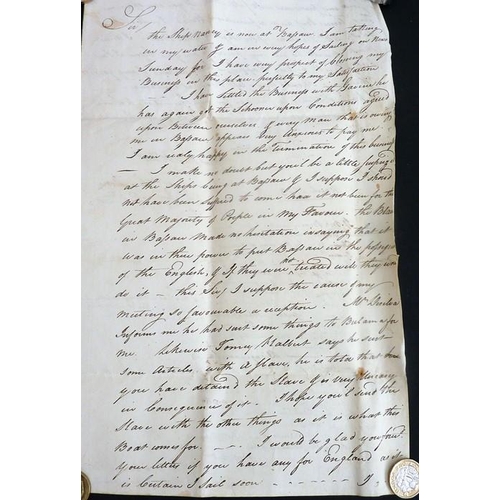 Sir/
the Ship Nancy is now at Bassaw I am taking
in my water & am in every hopes of Sailing on Next
Sunday for I have every prospect of Closing my
Business in this place perfectly to my Satisfaction
I have Settled the Business with he
has again got the Schooner upon Conditions agreed
upon Between ourselves & every man that is owing
me in Bassaw appears very Anxious to pay me
I am realy happy in the Termination of this business
— I make no doubt but you'l be a little surprized
at the Ships being at Bassaw & I suppose I should
not have been to come haw it not been for the
Great Majority of People in My Favour. the
in Bassaw Made no hesitation in saying that it
was in their power to put Bassaw in the
of the English, & If they were at treated well they
do it — this Sir, I suppose the cause of my
meeting so favourable a reception. Mr
Informs me he had sent some things to Bulam for
me. likewise says he sent
some Articles with A Slave, he is told that
you have detained the Slave & is very
in Consequence of it. I hope you'l send the
Slave with the other things as it is what this
Boat comes for — I would be glad you forwd.
Your letters if you have any for England as
is Certain I sail soon